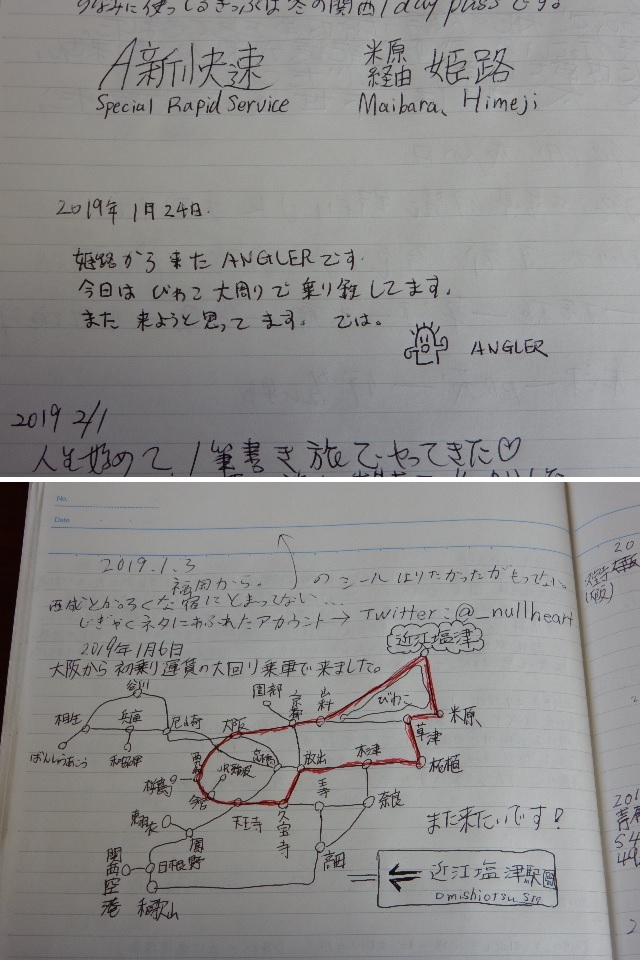 ちなみに使ってるきっぷは冬の関西1day passです。
A新快速
Special Rapid Service
米原経由 姫路
Maibara、Himeji
2019年1月24日.
姫路から来たANGLERです.
今日はびわこ大周りで乗り鉄してます.
また来ようと思ってます. では。
ANGLER
2019 2/1
人生始めて、1筆書き旅でやってきた♡
No.
Date
2019.1.3
福岡から。
のシールはりたかったがもってない。
西成とかろくな宿にとまってない...
じぎゃくネタにあふれたアカウント→ Twitter:@_nullheart
2019年1月6日
大阪から初乗り運賃の大回り乗車で来ました。
近江塩津
谷川
園部
京都
山科
びわこ
米原
相生
兵庫
尼崎
大阪
草津
ばんしゅうあこう
和田岬
京橋
放出
木津
柘植
桜島
JR難波
今宮
天王寺
久宝寺
王寺
奈良
東羽衣
鳳
高田
関西空港
日根野
和歌山
また来たいです!
← 近江塩津駅
Omishiotsu STA